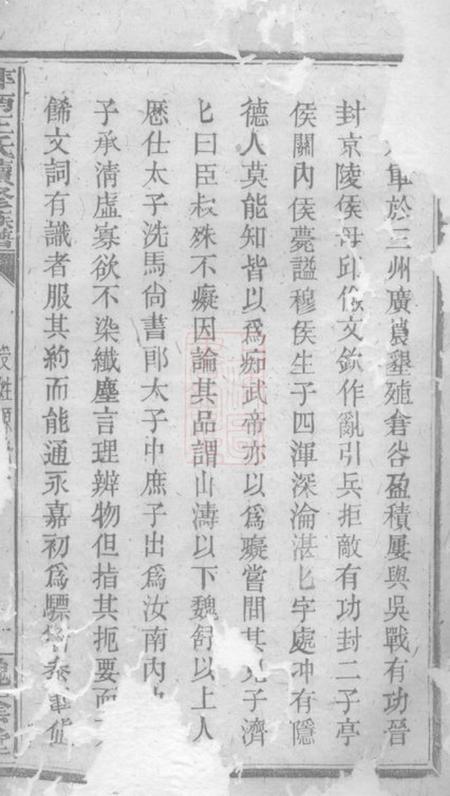 軍於三州廣農墾殖倉谷盈積屢與吳戰有功晉
封京陵侯毋邱儉文欽作亂引兵拒敵有功封二子亭
侯關內侯薨謚穆侯生子四渾深淪湛匕字處冲有隱
德人莫能知皆以爲痴武帝亦以爲癡嘗問其兄子濟
匕曰臣叔殊不癡因論其品謂山濤以下魏舒以上人
歷仕太子洗馬尙書郎太子中庶子出爲汝南內
子承清虛寡欲不染纖塵言理辨物但指其扼要而
餙文詞有識者服其約而能通永嘉初爲驃
王氏續修族譜
槐蔭堂